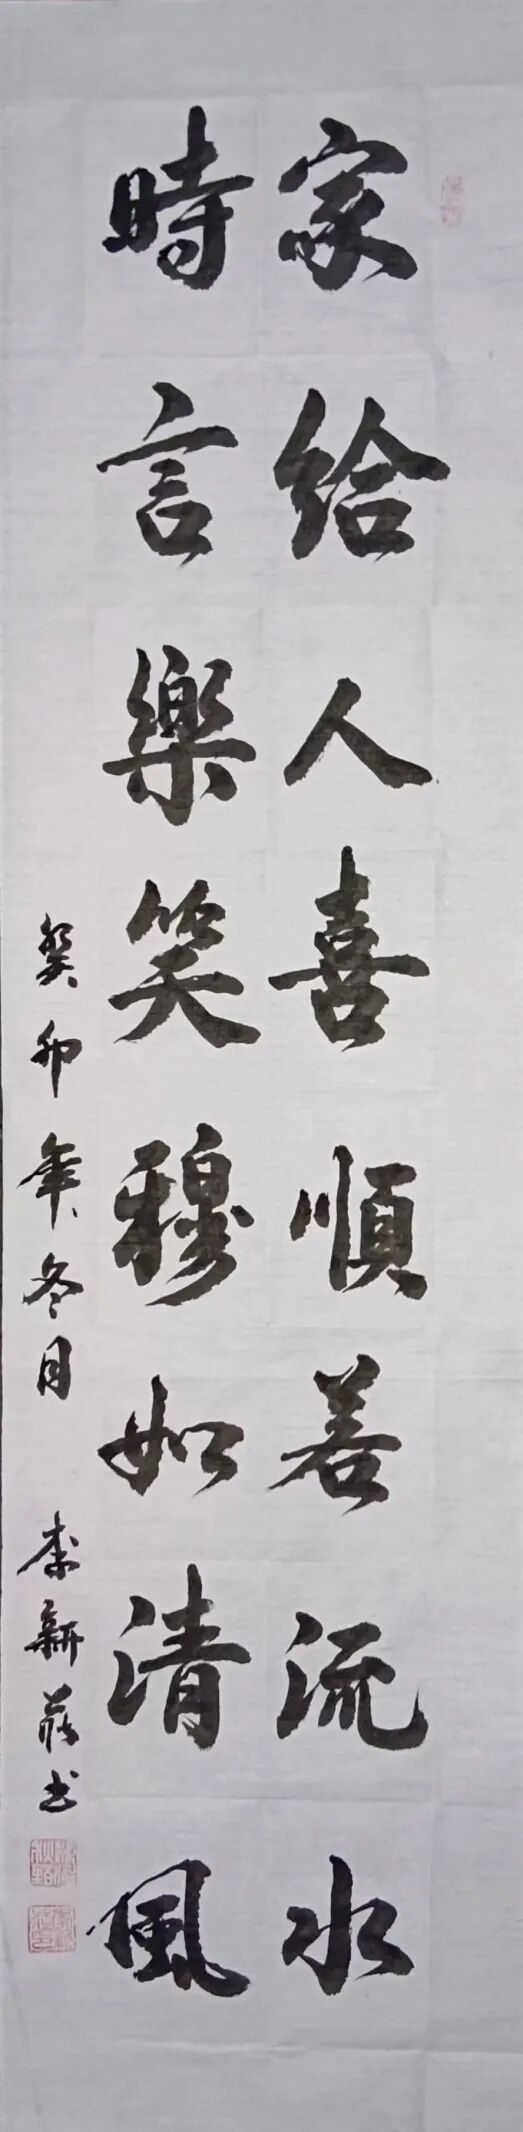 家给人喜順若流水
時言樂笑穆如清風
癸卯年冬月 李新
书